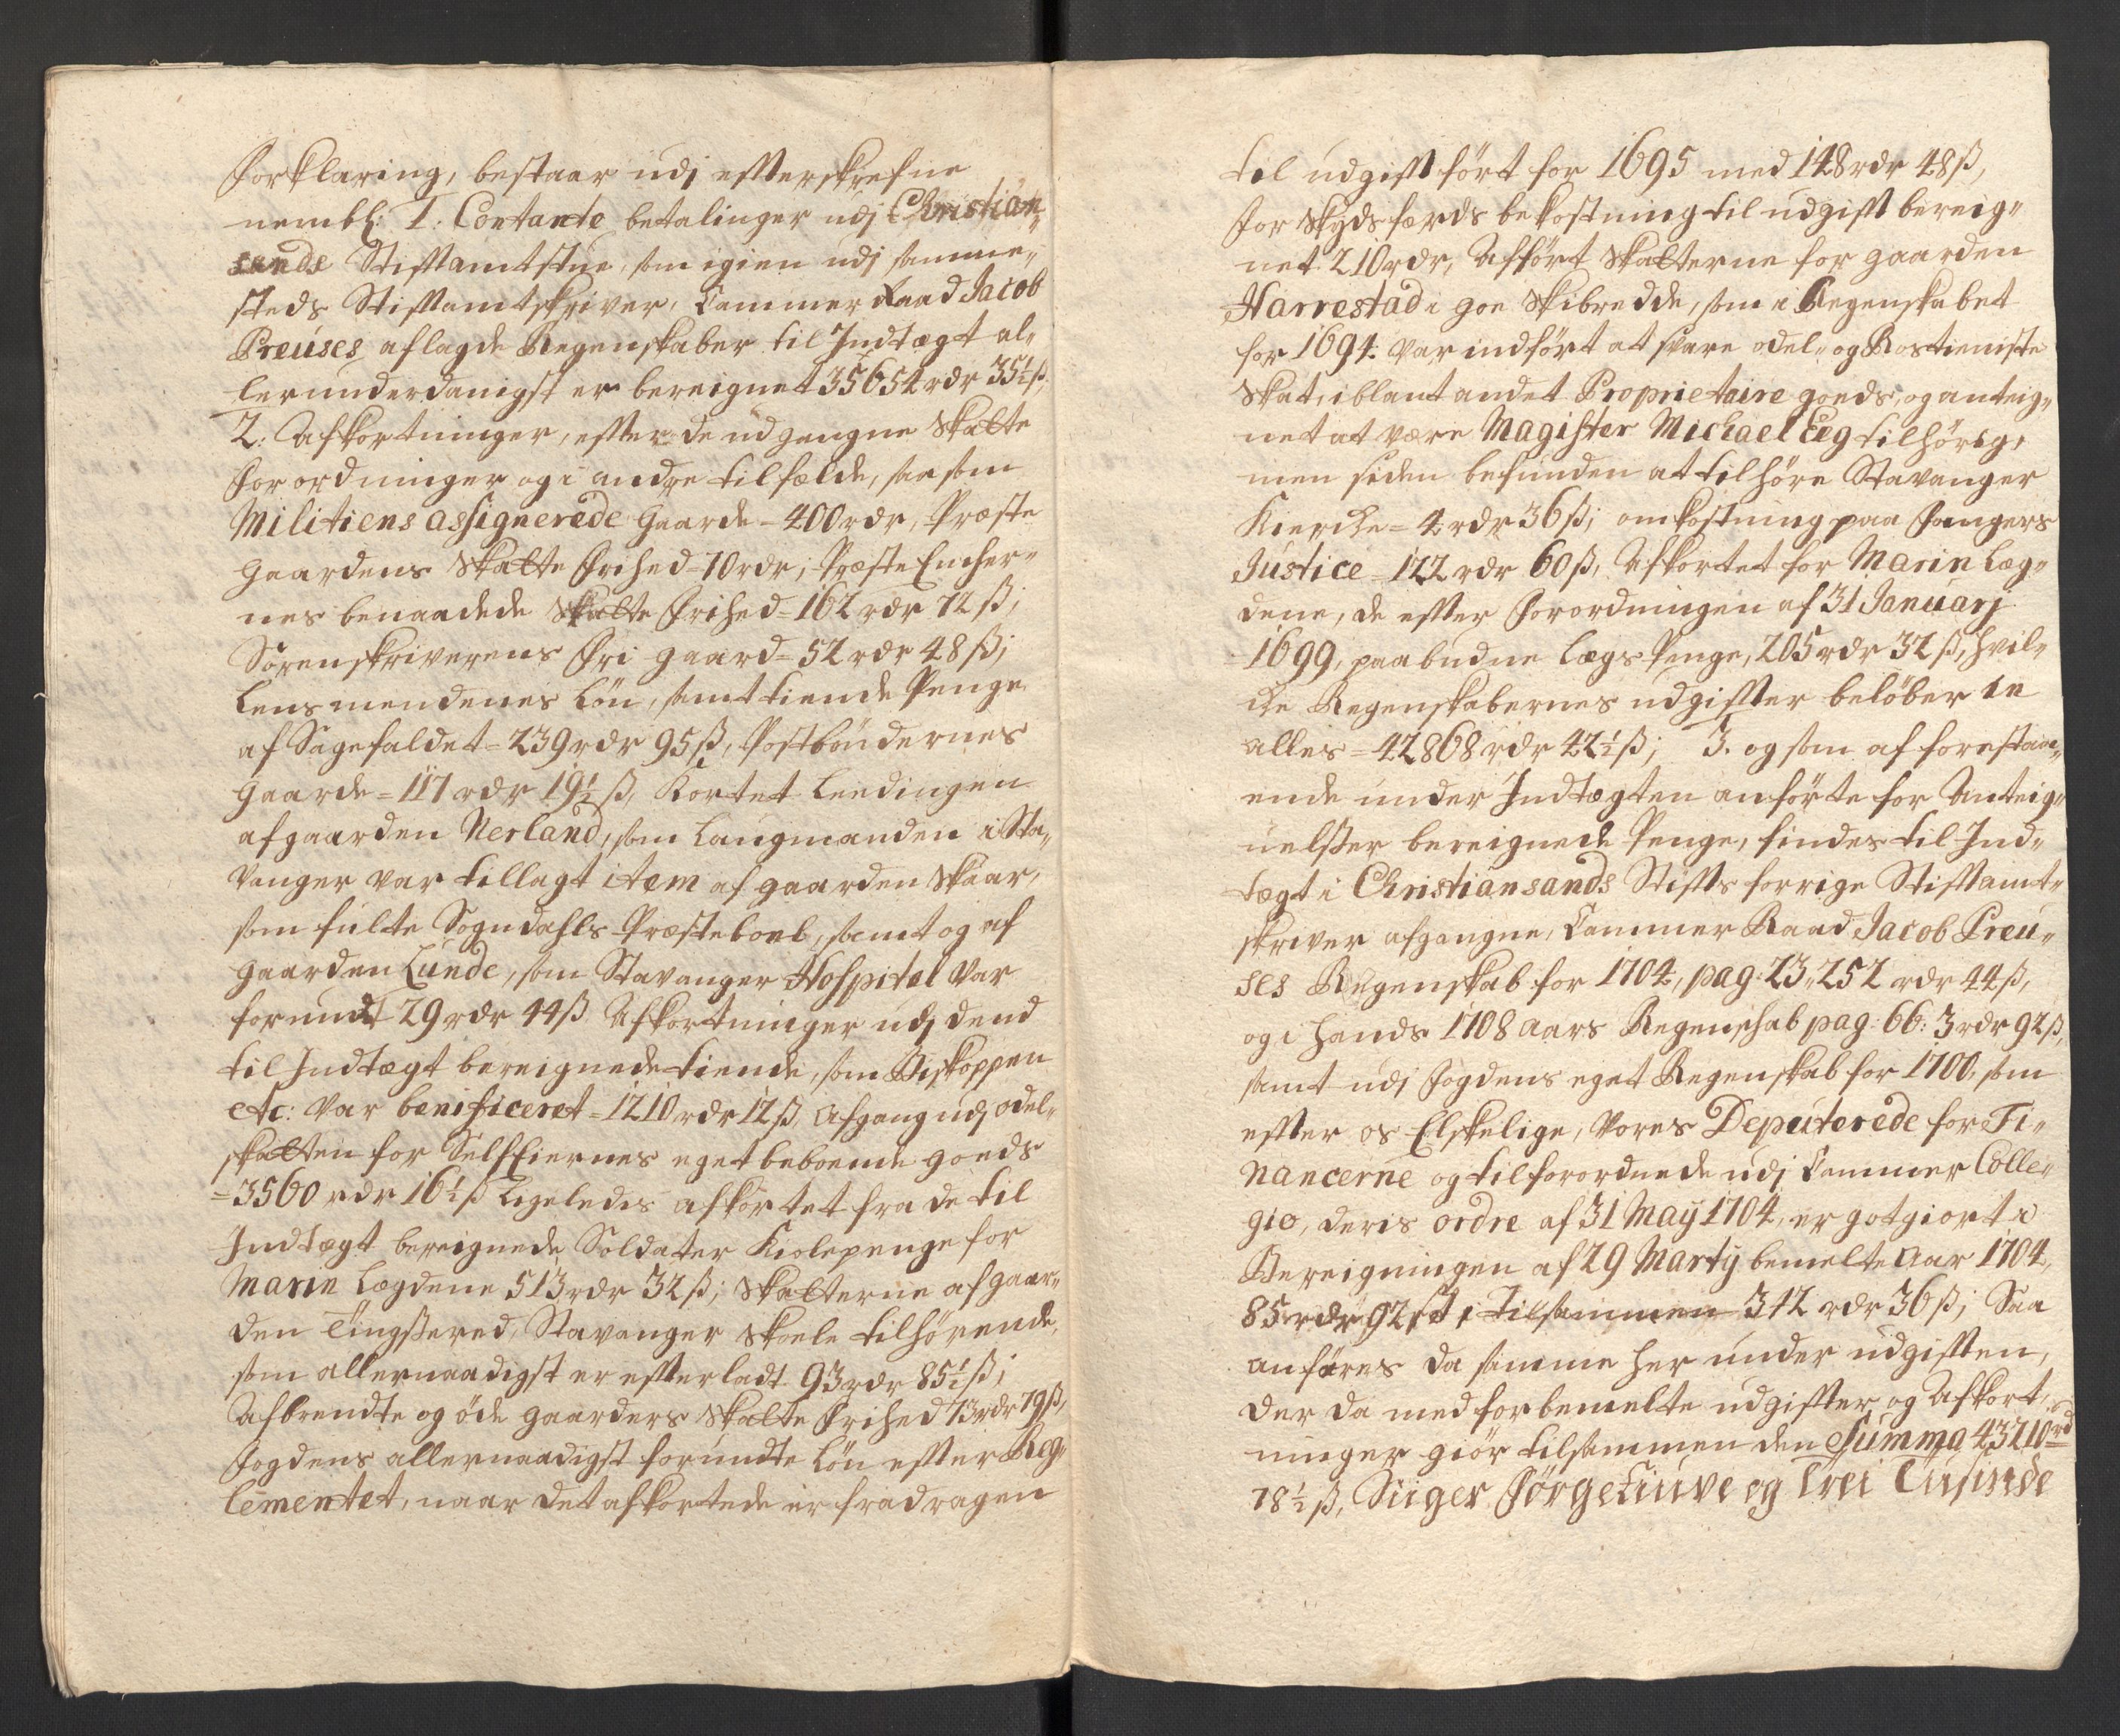 Forklaring, bestaar udj effterskrefne
nembl: 1. Contante betalinger udj Christian-
sands Stifftamtstue, som igien udj samme-
steds Stifftamtskriver, Cammer Raad Jacob
Preuses aflagde Regenskaber til Indtægt al-
lerunderdanigst er bereignet 35654 rdr 35½ ß,
2: Afkortninger, effter de udgangne Skatte
Forordninger og i andre tilfælde, saa som
Militiens assignerede Gaarde = 400 rdr, Præste
Gaardens Skatte Frihed = 70 rdr; Præste Encher-
nes benaadede Skatte Frihed = 162 rdr 72 ß;
Sorenskriverens Fri gaard = 52 rdr 48 ß;
Lensmendenes Løn, samt tiende Penge
af Sagefaldet = 239 rdr 95 ß, Postbøndernes
Gaarde = 117 rdr 19½ ß, Kortet Leedingen
af gaarden Nerland, som Laugmanden i Sta-
vanger var tillagt item af gaarden Skaar,
som fulte Sogndahls Præsteboel, samt og af
gaarden Lunde, som Stavanger Hospital var
forundt 29 rdr 44 ß Afkortninger udj dend
til Indtægt bereignede tiende, som Biskoppen
etc: var benificeret = 1210 rdr 12 ß, Afgang udj odel-
skatten for SelfEiernes eget beboende goeds
= 3560 rdr 16½ ß Ligeledes afkortet fra de til
Indtægt bereignede Soldater Kiolepenge for
Marin Lægdene 513 rdr 32 ß; Skatterne af gaar-
den Tingssered, Stavanger Skoele tilhørende,
som allernaadigst er effterladt 93 rdr 85½ ß;
Afbrendte og øde gaarders Skatte Frihed 73 rdr 79 ß,
Fogdens allernaadigst forundte Løn effter Reg-
lementet, naar det afkortede er fradragen
til udgifft ført for 1695 med 148 rdr 48 ß,
for Skydsfærds bekostning til udgifft bereig-
net 210 rdr, Afført Skatterne for gaarden
Harrestad i goe Skibredde, som i Regenskabet
for 1694 var indført at svare odel- og Rostieniste
Skat, iblant andet Proprietaire goeds, og anteig-
net at være Magister Michael Leg tilhørig,
men siden befunden at tilhøre Stavanger
Kierche = 4 rdr 36 ß; omkostning paa Fangers
Justice = 122 rdr 60 ß, Afkortet for Marin Læg-
dene, de effter Forordningen af 31 Januarj
1699, paabudne Lægs Penge, 205 rdr 32 ß, hvil-
che Regenskabernes udgiffter beløber in
alles = 42868 rdr 42½ ß; 3. og som af forestaa-
ende under Indtægten anførte for Anteig-
nelsser bereignede Penge, findes til Ind-
tægt i Christiansands Stiffts forrige Stifftamt-
skriver afgangne, Cammer Raad Jacob Preu-
ses Regenskab for 1704, pag: 23, 252 rdr 44 ß,
og i hands 1708 aars Regenschab pag: 66: 3 rdr 92 ß,
samt udj Fogdens eget Regenskab for 1700, som
effter os Elskelige, Vores Deputerede for Fi-
nancerne og tilforordnede udj Cammer Colle-
gio, deris ordre af 31 Maÿ 1704, er gotgiort i
Bereigningen af 29 Martÿ bemelte Aar 1704,
85 rdr 92 ß, tilsammen 342 rdr 36 ß; Saa
anføres da samme her under udgifften,
der da med forbemelte udgiffter og Afkort-
ninger giør tilsammen den Summa 43210 rd
78½ ß, Siiger Førgetiuve og trei Tusinde